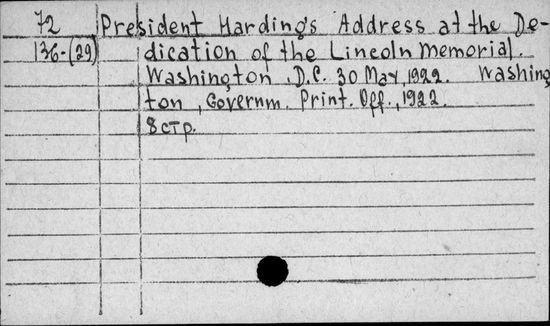 72 President Harding's Address at the De-
136-(29) dication of the Lincoln Memorial.
Washington, D.C. 30 May, 1922. Washing
ton, Governm. Print. Off., 1922.
8 стр.